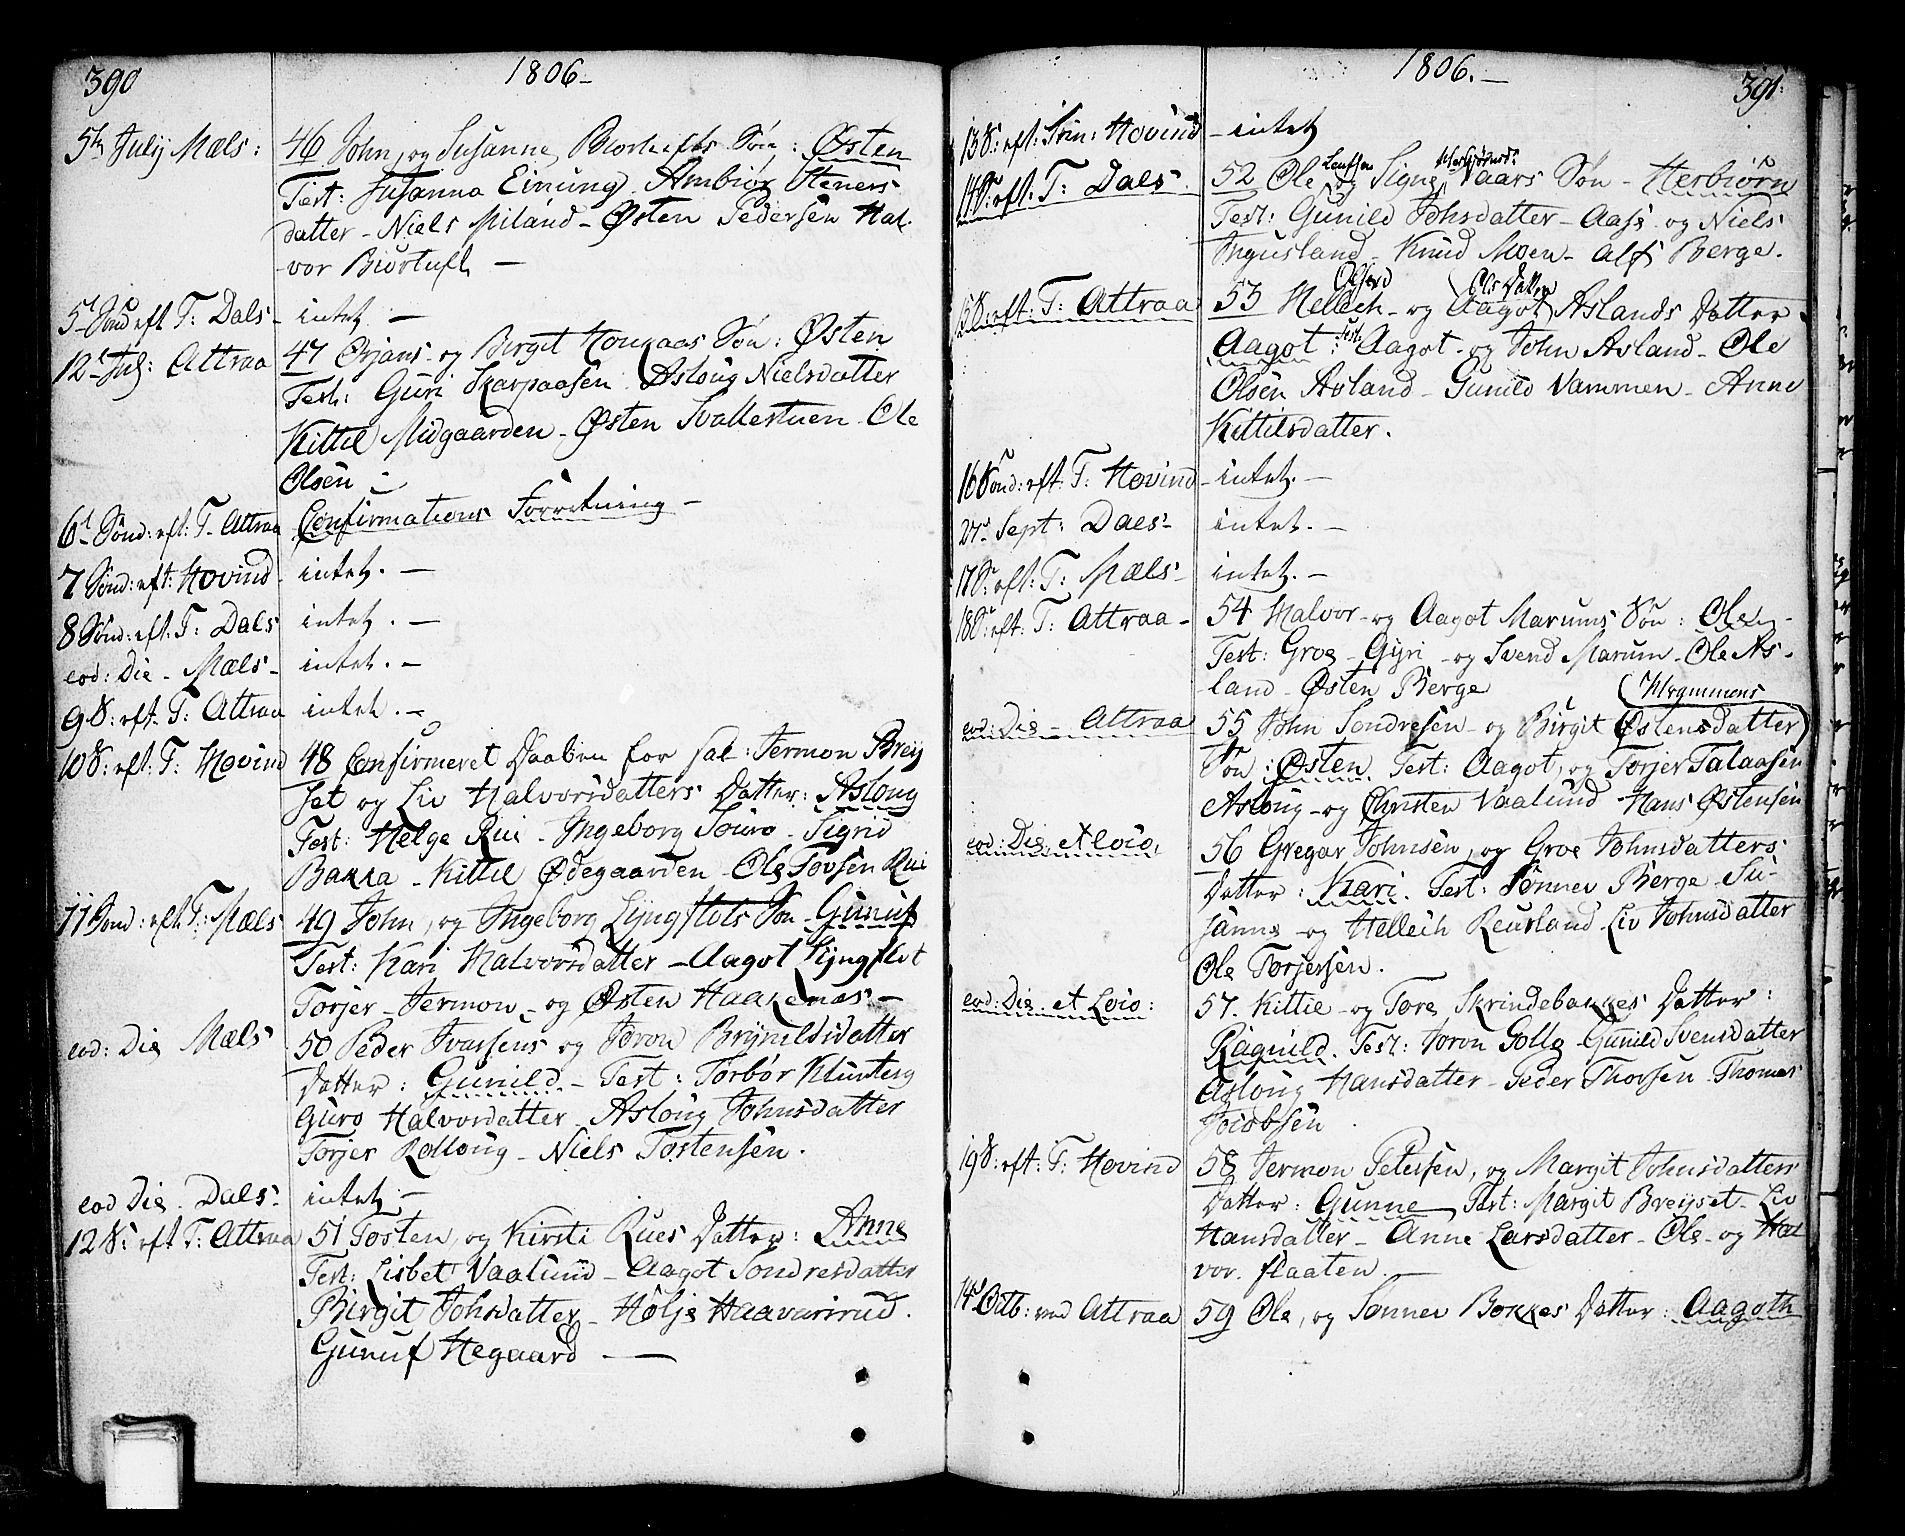 390
1806 -
5te July Mæls: 46 John, og Susanne Biortufts Søn: Østen
Test: Susanna Einung. Ambiør Steners
datter - Niels Miland - Østen Pedersen Hal
vor Biortuft -
5te Sønd eft T: Dals - intet -
12te Jul: Attraa 47 Ørjans og Birgit Houkaas Søn: Østen
Test: Guri Skarpaasen. Asloug Nielsdatter
Kittil Midgaarden - Østen Svallestuen - Ole
Olsen -
6te Sønd: eft. T. Attraa Confirmations Forretning -
7 Sønd: eft: Hovind - intet. -
8 Sønd: eft: T: Dals intet. -
eod: Die - Mæls - intet. -
9 S: eft. T: Attraa intet. -
10 S: eft. T: Hovind 48 Confirmeret Daaben for sal: Jermon Brey
set og Liv Halvorsdatters Datter: Asloug
Test: Helge Rui - Ingeborg Souro - Sigrid
Bakka - Kittil Ødegaarden - Ole Tovsen Rui
11 Sønd: eft. T: Mæls 49 John, og Ingeborg Lyngflots Søn - Gunuf
Test: Kari Halvorsdatter - Aagot Lyngflot
Torjer - Jermon - og Østen Haakenæs -
eod: Die Mæls 50 Peder Ivarsens og Joron Brynildsdatter
Datter: Gunild. - Test: Torbør Klunteig
Guro Halvorsdatter. Asloug Johnsdatter
Torjer Rolloug - Niels Tostensen.
eod Die. Dals - intet -
12 S: eft T: Attraa 51 Tosten, og Kirsti Rues Datter: Anne
Test: Lisbet Vaalund - Aagot Sondresdatter
Birgit Johsdatter - Hølje Haavarsrud.
Gunuf Hegaard -
1806. -
391.
13 S: eft: Trin: Hovind - intet
14 S: eft. T: Dals. 52 Ole Leufsen og Signe Herbjørnsd: Vaars Søn - Herbiørn
Test: Gunild Johsdatter - Aase og Niels
Ingusland - Knud Moen - Alf Berge.
Olsens Ols Datter
15 S: eft: T: Attraa 53 Hellech - og Aagot Aslands Datter -
Aagot: Test: Aagot - og John Asland - Ole
Olsen Asland - Gunild Vammen - Anne
Kittilsdatter.
16 Sønd: eft. T: Hovind - intet. -
21de Sept: Daels - intet. -
17 S: eft: T: Mæls - intet. -
18 S: eft: T: Attraa - 54 Halvor - og Aagot Marums Søn: Ole -
Test: Groe - Gyri - og Svend Marum - Ole As-
land - Østen Berge
eod: Die - Attraa 55 John Sondresen - og Birgit Østensdatter
Søn: Østen. Test: Aagot, og Torjer Talaasen
Asloug - og Christen Vaalund - Hans Østensen
eod: Die, et loco, 56 Gregar Johnsen, og Groe Johnsdatters
Datter: Kari. Test: Sønnev Berge - Su-
sanne - og Hellech Reusland - Liv Johnsdatter
Ole Torjersen.
eod: Die et Loco: 57. Kittil - og Tore Skrindebakkes Datter:
Ragnild. Test: Joron Golle - Gunild Svensdatter
Asloug Hansdatter - Peder Thorsen - Thomas
Jacobsen.
19 S: eft: T: Hovind 58 Jermon Petersen, og Margit Johnsdatters
Datter: Gunne Test: Margit Breyset - Liv
Hansdatter - Anne Larsdatter - Ole - og Hal
vor. flaaten. -
14de Octb: ved Attraa 59 Ole, og Sønnev Bakkes Datter: Aagoth